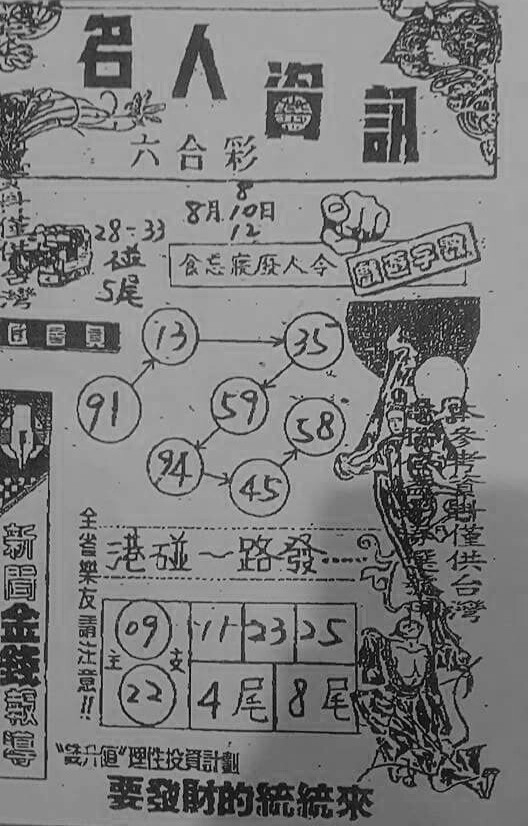 名人資訊
六合彩
8
8月10日
12
28-33
碰
5尾
食忘寢廢人令
13
35
91
59
58
94
45
本參考資料僅供台灣
港碰一路發……
全省樂友請注意!!
09
11
23
25
主
支
22
4尾
8尾
新聞金錢報導
理性投資計劃
要發財的統統來